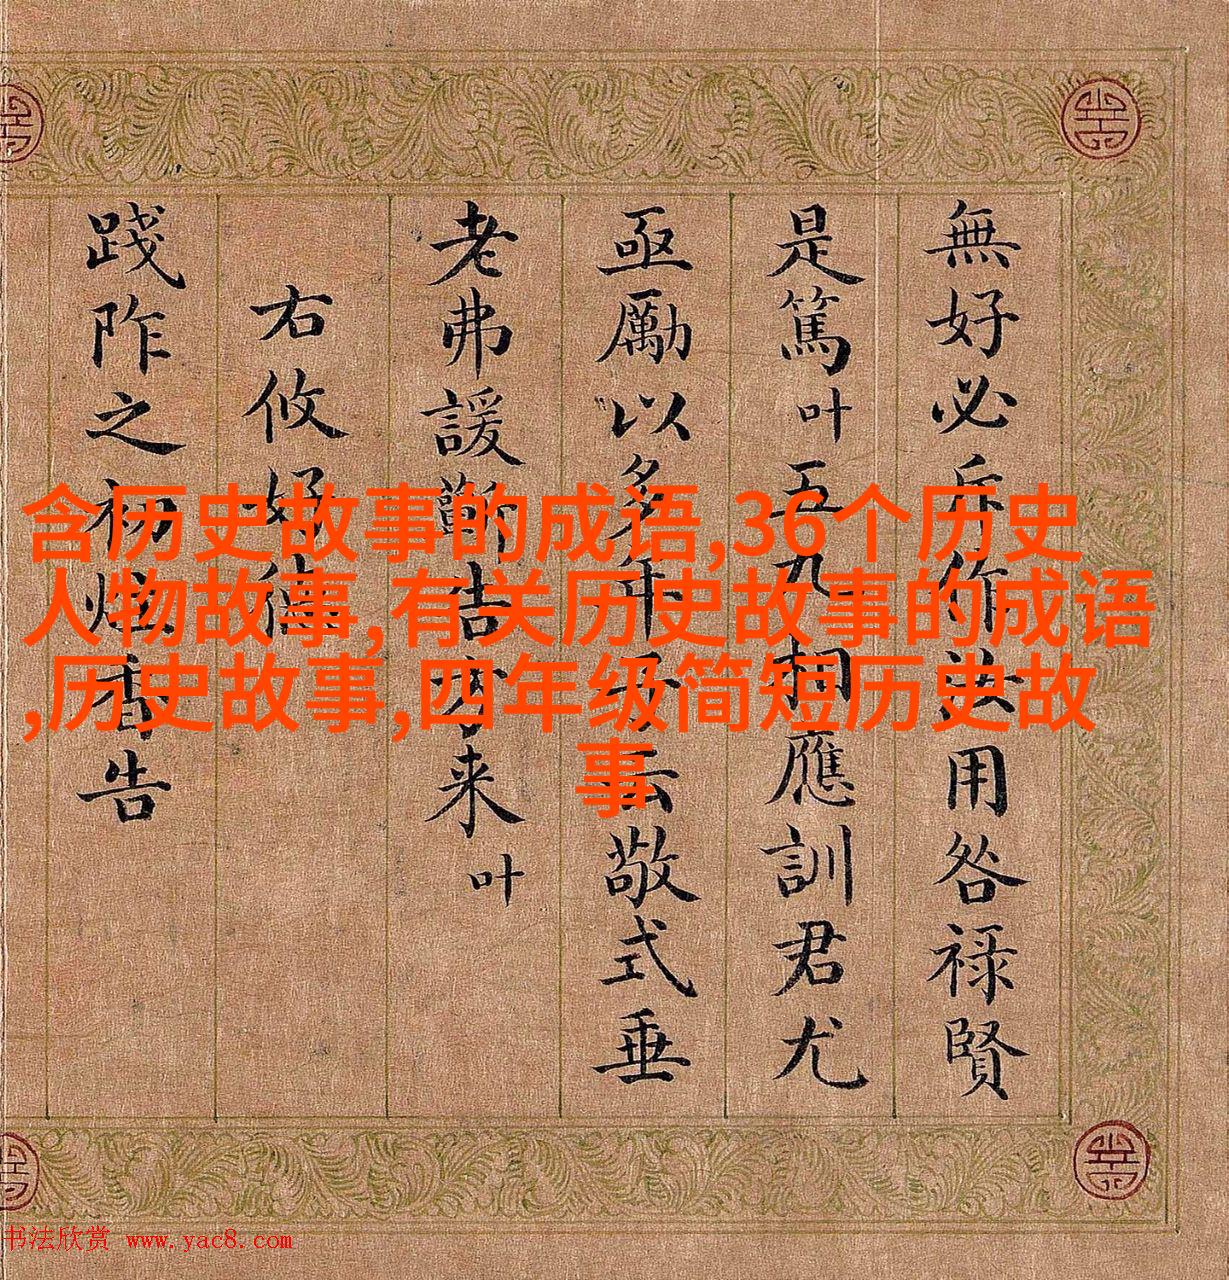 含历史故事的成语,36个历史
人物故事,有关历史故事的成语
,历史故事,四年级简短历史故
事
無好必斥作汝用咎禄賢
是篤叶五九相應訓君尤
亟勵以多年予云敬式垂
老弗諼吉来叶
右攸好德
踐阼之初炷香告
书法欣赏 www.yac8.com